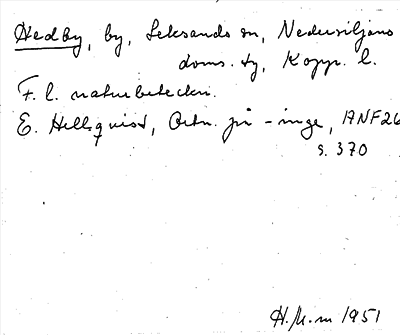 Hedby, by, Leksands sn, Nedansiljans
doms. tg, Kopp. l.
F. l. naturbeteckn.
E. Hellquist, Ortn. på -inge, ANF 26
s. 370
H.M-m 1951